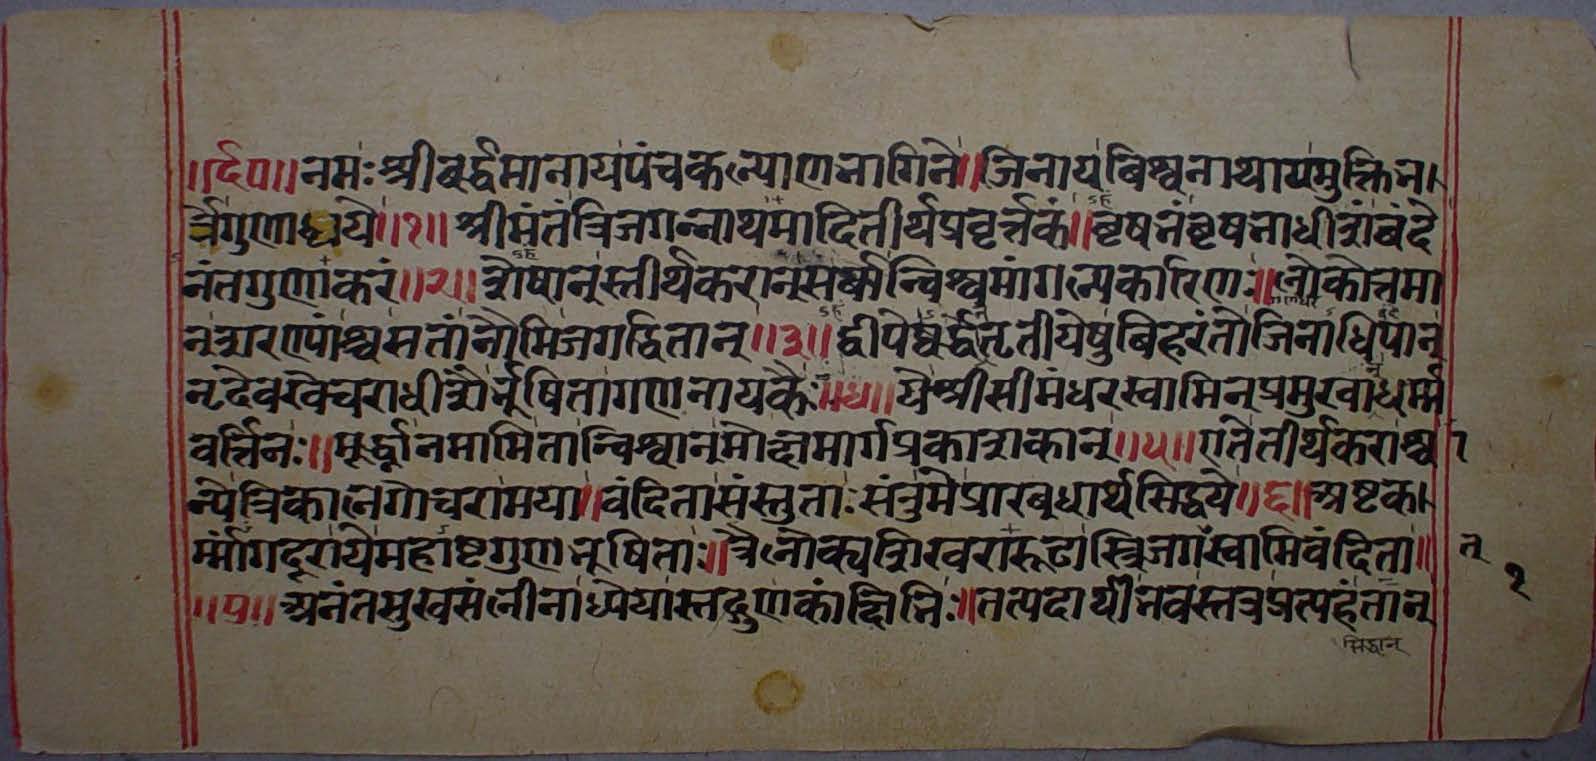 ॥र्द०॥ नमः श्रीवर्द्धमानाय पंचकल्याणभागिने ॥ जिनाय विश्वनाथाय मुक्तिभ
र्त्रे गुणाब्धये ॥१॥ श्रीमंतं त्रिजगन्नाथमादितीर्थप्रवृर्त्तकं ॥ वृषभं वृषभाधीशं वंदे
नंतगुणाकरं ॥२॥ शेषान्स्तीर्थकरान्सर्वान्विश्वमांगल्यकारिणः ॥ लोकोत्तमा
न् शरण्यांश्च सतां नौमि जगद्धितान् ॥३॥ द्वीपेष्वर्द्धतृतीयेषु विहरंतो जिनाधिपान्
नृदेवखेचराधीशैर्भूषिता गणनायकैः ॥४॥ ये श्रीसीमंधरस्वामिन्प्रमुखा धर्म्म
वर्त्तिनः ॥ मूर्द्ध्ना नमामि तान्विश्वान् मोक्षमार्गप्रकाशकान् ॥५॥ एते तीर्थकराश्च
न्ये त्रिकालगोचरा मया ॥ वंदिता संस्तुताः संतु मे प्रारब्धार्थसिद्धये ॥६॥ अष्टक
र्म्मांगदूरा ये महाष्टगुणभूषिताः ॥ त्रैलोक्यशिखरारूढास्त्रिजगस्वामिवंदिता ॥
॥७॥ अनंतसुखसंलीना ध्येयास्तद्गुणकांक्षिभिः ॥ तत्पदार्थी भवस्तत्र प्रत्यहं तान्
त्
१
सिद्धान्